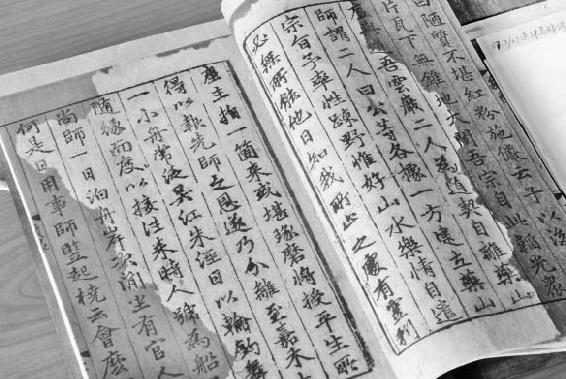 陋質不堪紅粉施儂云子以後
片瓦下無錐地大開吾宗自此
吾雲巖二人為道契自離藥山
師謂二人曰公等各據一方建立藥山
宗旨予率性踈野惟好山水樂情自遣
必無所能他日知我所止之處有靈利
座主指一箇來或堪琢磨將授平生所
得以報先師之恩遂乃分離至嘉禾上
一小舟常泛吳江朱涇日以輪釣舞
隨緣而度以接往來時人號為船
尚師一日泊舟岸次閒坐有官人
何是日用事師豎起橈云會麼